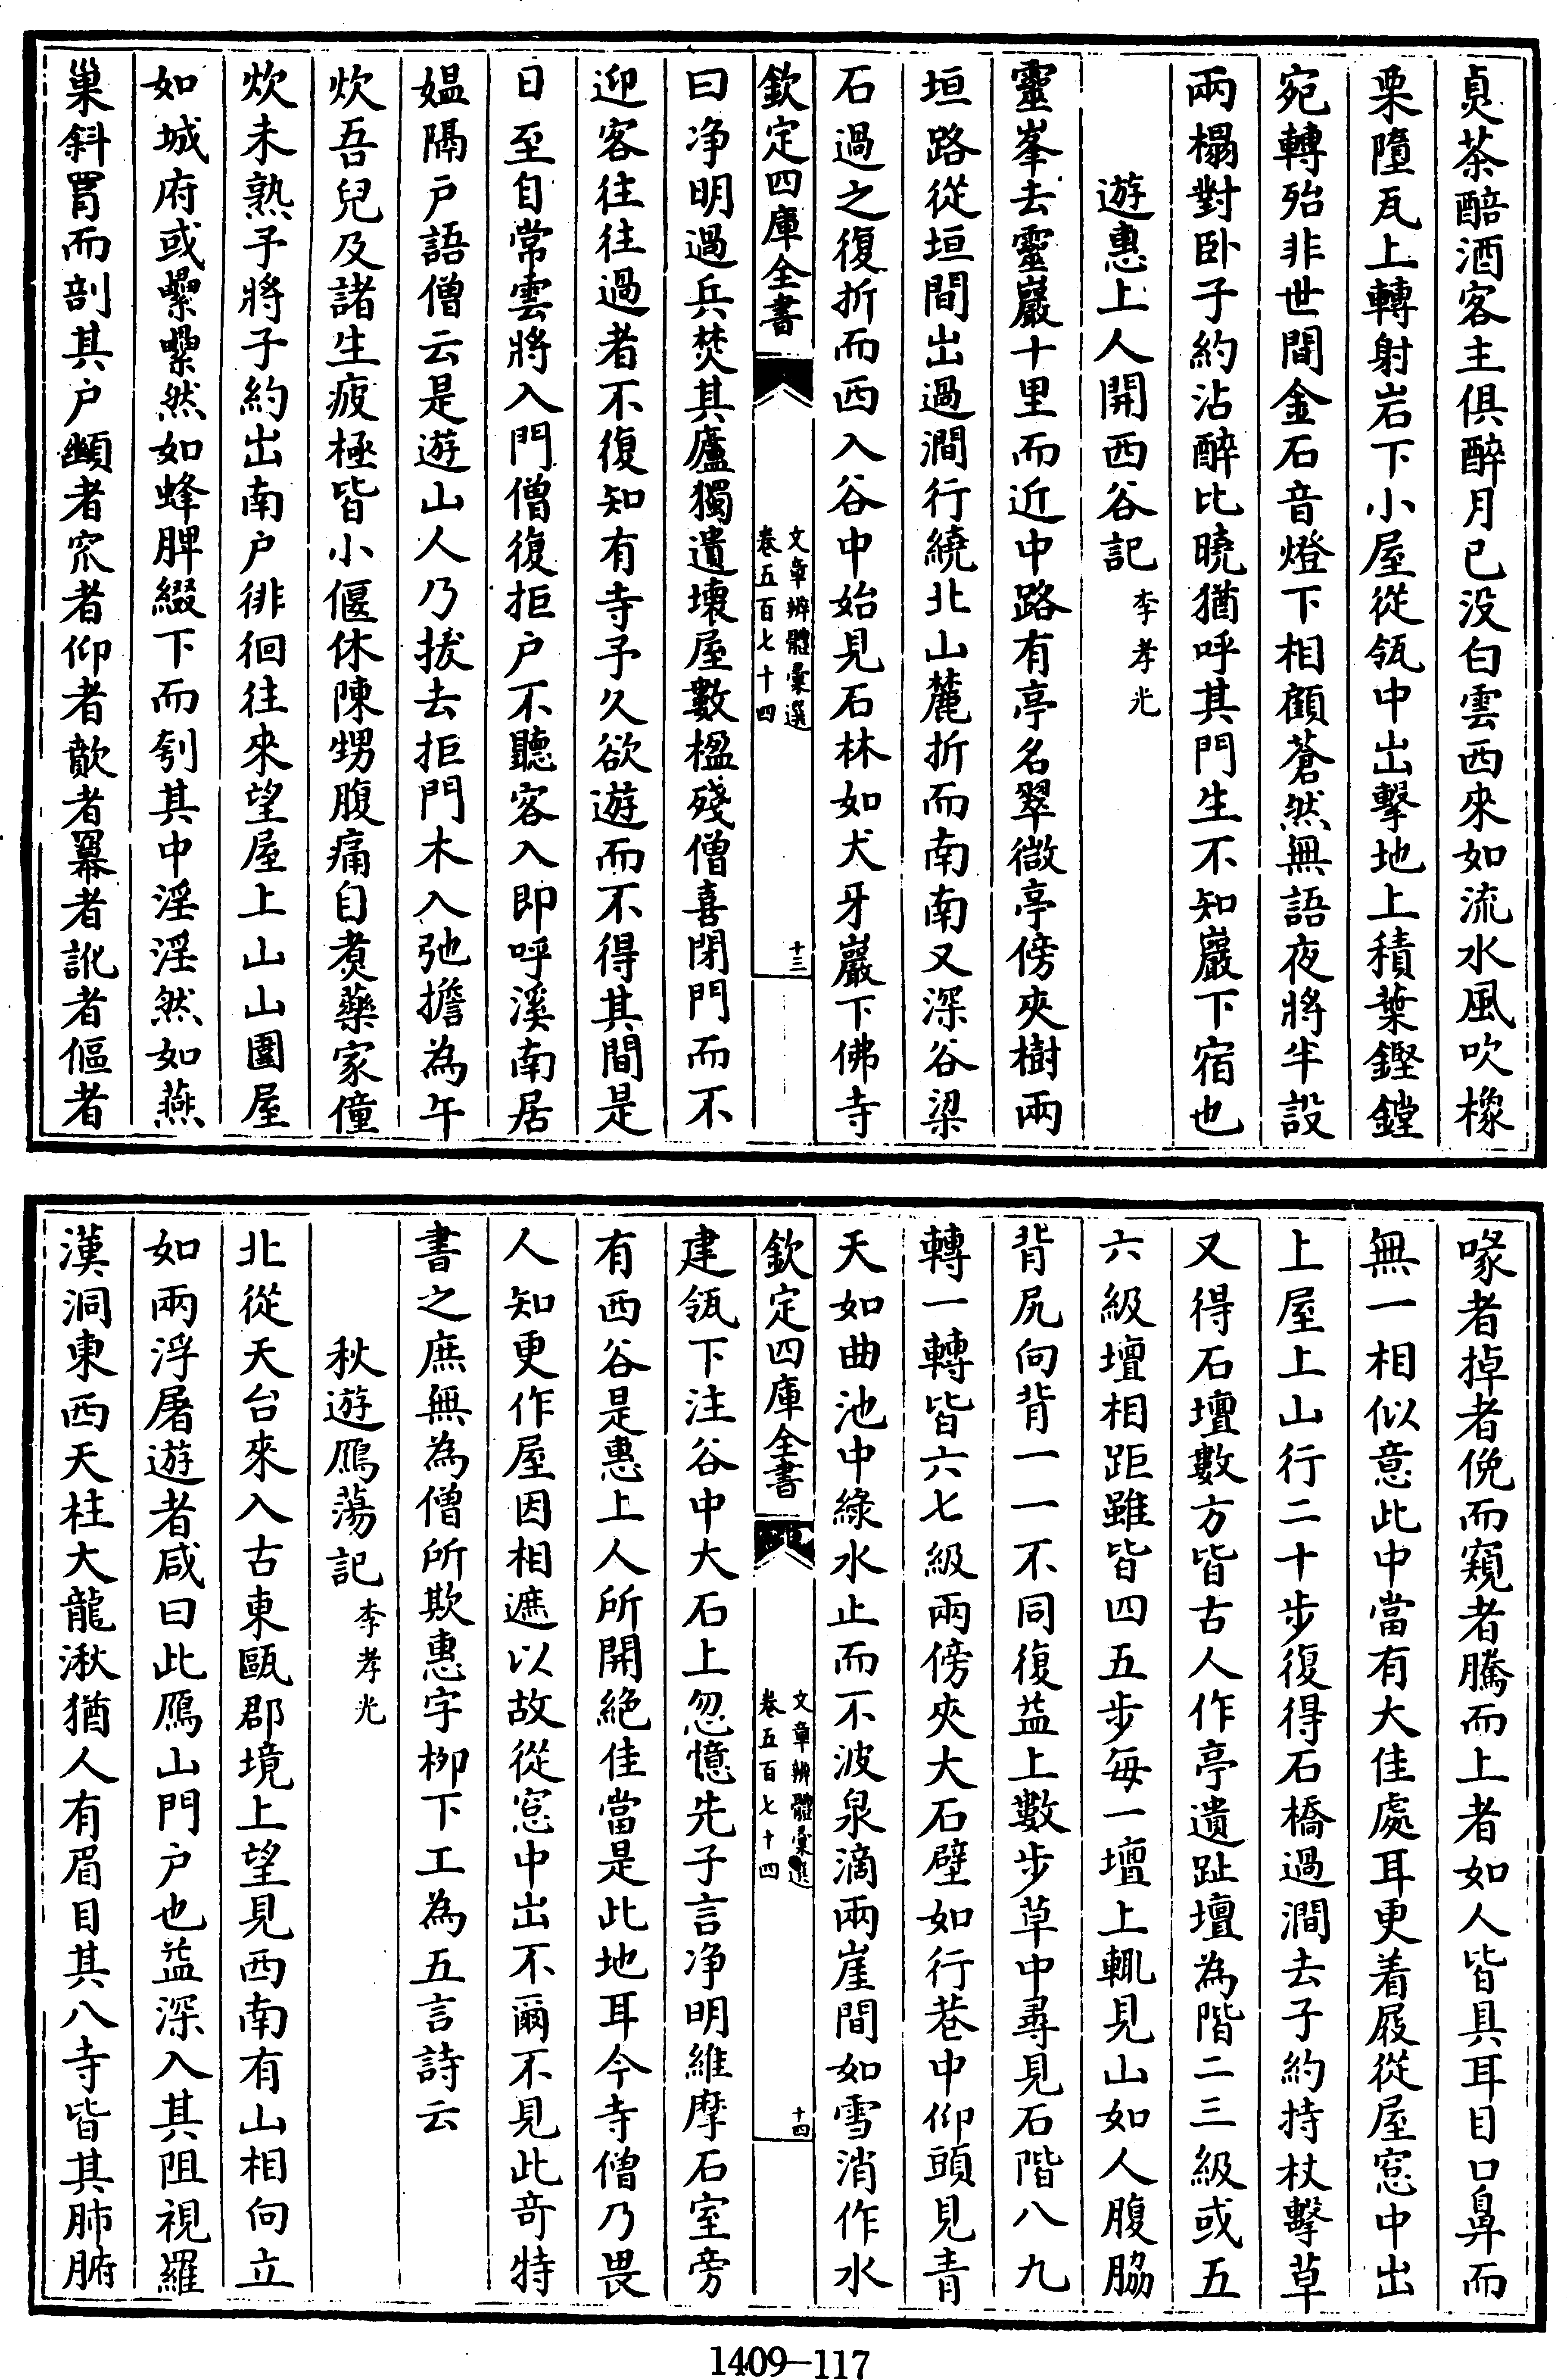 貞茶醅酒客主俱醉月已没白雲西來如流水風吹橡
栗墮瓦上轉射岩下小屋從瓴中出擊地上積葉鏗鏜
宛轉殆非世間金石音燈下相顧蒼然無語夜將半設
兩榻對卧子約沾醉比曉猶呼其門生不知巖下宿也
遊惠上人開西谷記李孝光
靈峯去靈巖十里而近中路有亭名翠微亭傍夾樹兩
垣路從垣間出過澗行繞北山麓折而南南又深谷梁
石過之復折而西入谷中始見石林如犬牙巖下佛寺
欽定四庫全書
文章辨體彙選
卷五百七十四
十三
曰净明過兵焚其廬獨遺壞屋數楹殘僧喜閉門而不
迎客往往過者不復知有寺予久欲遊而不得其間是
日至自常雲將入門僧復拒户不聽客入即呼溪南居
媪隔户語僧云是遊山人乃拔去拒門木入弛擔為午
炊吾兒及諸生疲極皆小偃休陳甥腹痛自煑藥家僮
炊未熟予將子約出南户徘徊往來望屋上山山圍屋
如城府或纍纍然如蜂脾綴下而刳其中淫淫然如燕
巢斜罥而剖其户顱者宎者仰者歕者羃者訿者傴者
喙者掉者俛而窺者騰而上者如人皆具耳目口鼻而
無一相似意此中當有大佳處耳更着屐從屋窓中出
上屋上山行二十步復得石橋過澗去子約持杖擊草
又得石壇數方皆古人作亭遺趾壇為階二三級或五
六級壇相距雖皆四五步每一壇上輒見山如人腹脇
背尻向背一一不同復益上數步草中尋見石階八九
轉一轉皆六七級兩傍夾大石壁如行巷中仰頭見青
天如曲池中綠水止而不波泉滴兩崖間如雪消作水
欽定四庫全書
文章辨體彙選
卷五百七十四
十四
建瓴下注谷中大石上忽憶先子言净明維摩石室旁
有西谷是惠上人所開絶佳當是此地耳今寺僧乃畏
人知更作屋因相遮以故從窓中出不爾不見此奇特
書之庶無為僧所欺惠字柳下工為五言詩云
秋遊鴈蕩記李孝光
北從天台來入古東甌郡境上望見西南有山相向立
如兩浮屠遊者咸曰此鴈山門户也益深入其阻視羅
漢洞東西天柱大龍湫猶人有眉目其八寺皆其肺腑
1409—117